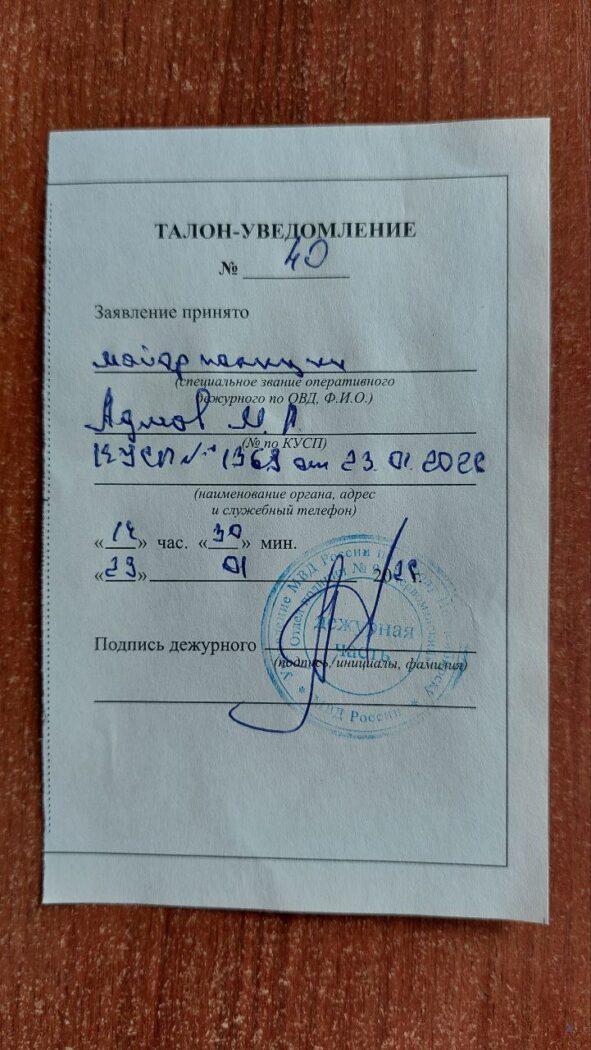 ТАЛОН-УВЕДОМЛЕНИЕ
№ 40
Заявление принято
майор полиции
(специальное звание оперативного
дежурного по ОВД, Ф.И.О.)
М. А.
(№ по КУСП)
КУСП № 1369 от 23.01.2026
(наименование органа, адрес
и служебный телефон)
«14» час. «30» мин.
«23» 01 2026 г.
Подпись дежурного
(подпись, инициалы, фамилия)
МВД России
Отдел полиции №
дежурная
часть
МВД России